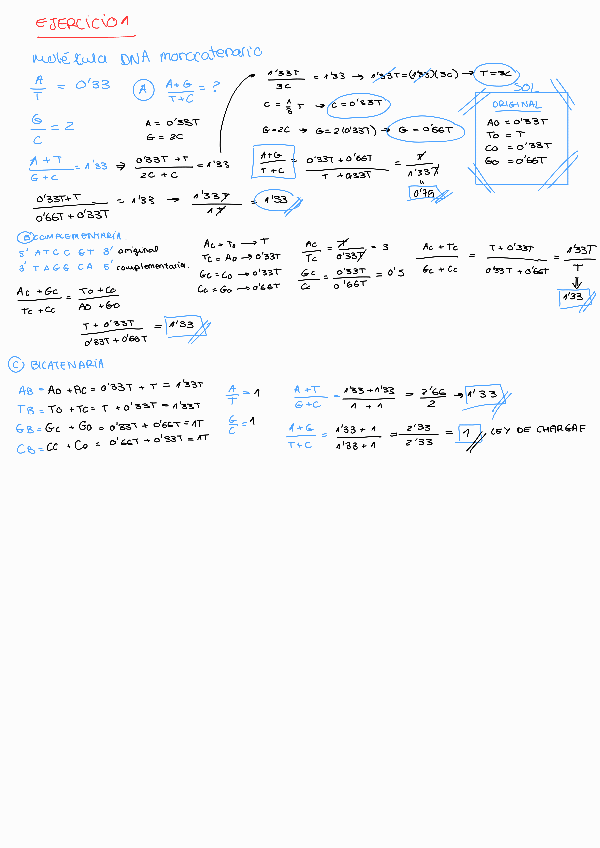 EJERCICIO 1
Molécula DNA monocatenario
A/T = 0'33
(A) A+G/T+C = ?
1'33T/3C = 1'33 → 1'33T = (1'33)(3C) → T = 3C
G/C = 2
A = 0'33T
G = 2C
C = 1/3 T → C = 0'33T
G = 2C → G = 2(0'33T) → G = 0'66T
SOL
ORIGINAL
AO = 0'33T
TO = T
CO = 0'33T
GO = 0'66T
A+T/G+C = 1'33 ⇒ 0'33T + T/2C + C = 1'33
A+G/T+C = 0'33T + 0'66T/T + 0'33T = T/1'33T = 0'75
0'33T+T/0'66T + 0'33T = 1'33 → 1'33T/1T = 1'33
(B) COMPLEMENTARIA
5' ATCC GT 3' original
3' TAGG CA 5' complementaria.
Ac = To → T
Tc = AO → 0'33T
Gc = CO → 0'33T
Cc = GO → 0'66T
Ac/Tc = T/0'33T = 3
Gc/Cc = 0'33T/0'66T = 0'5
Ac + Tc/Gc + Cc = T + 0'33T/0'33T + 0'66T = 1'33T/T
1'33
Ac + Gc/Tc + Cc = TO + CO/AO + GO
T + 0'33T/0'33T + 0'66T = 1'33
(C) BICATENARIA
AB = AO + AC = 0'33T + T = 1'33T
TB = TO + TC = T + 0'33T = 1'33T
GB = GC + GO = 0'33T + 0'66T = 1T
CB = CC + CO = 0'66T + 0'33T = 1T
A/T = 1
G/C = 1
A+T/G+C = 1'33 + 1'33/1 + 1 = 2'66/2 → 1'33
A+G/T+C = 1'33 + 1/1'33 + 1 = 2'33/2'33 = 1 LEY DE CHARGAF